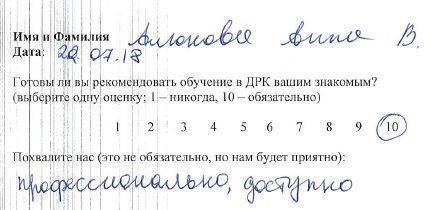 Имя и Фамилия Анна В.
Дата: 22.07.18
Готовы ли вы рекомендовать обучение в ДРК вашим знакомым?
(выберите одну оценку; 1 – никогда, 10 – обязательно)
1 2 3 4 5 6 7 8 9 10
Похвалите нас (это не обязательно, но нам будет приятно):
профессионально, доступно